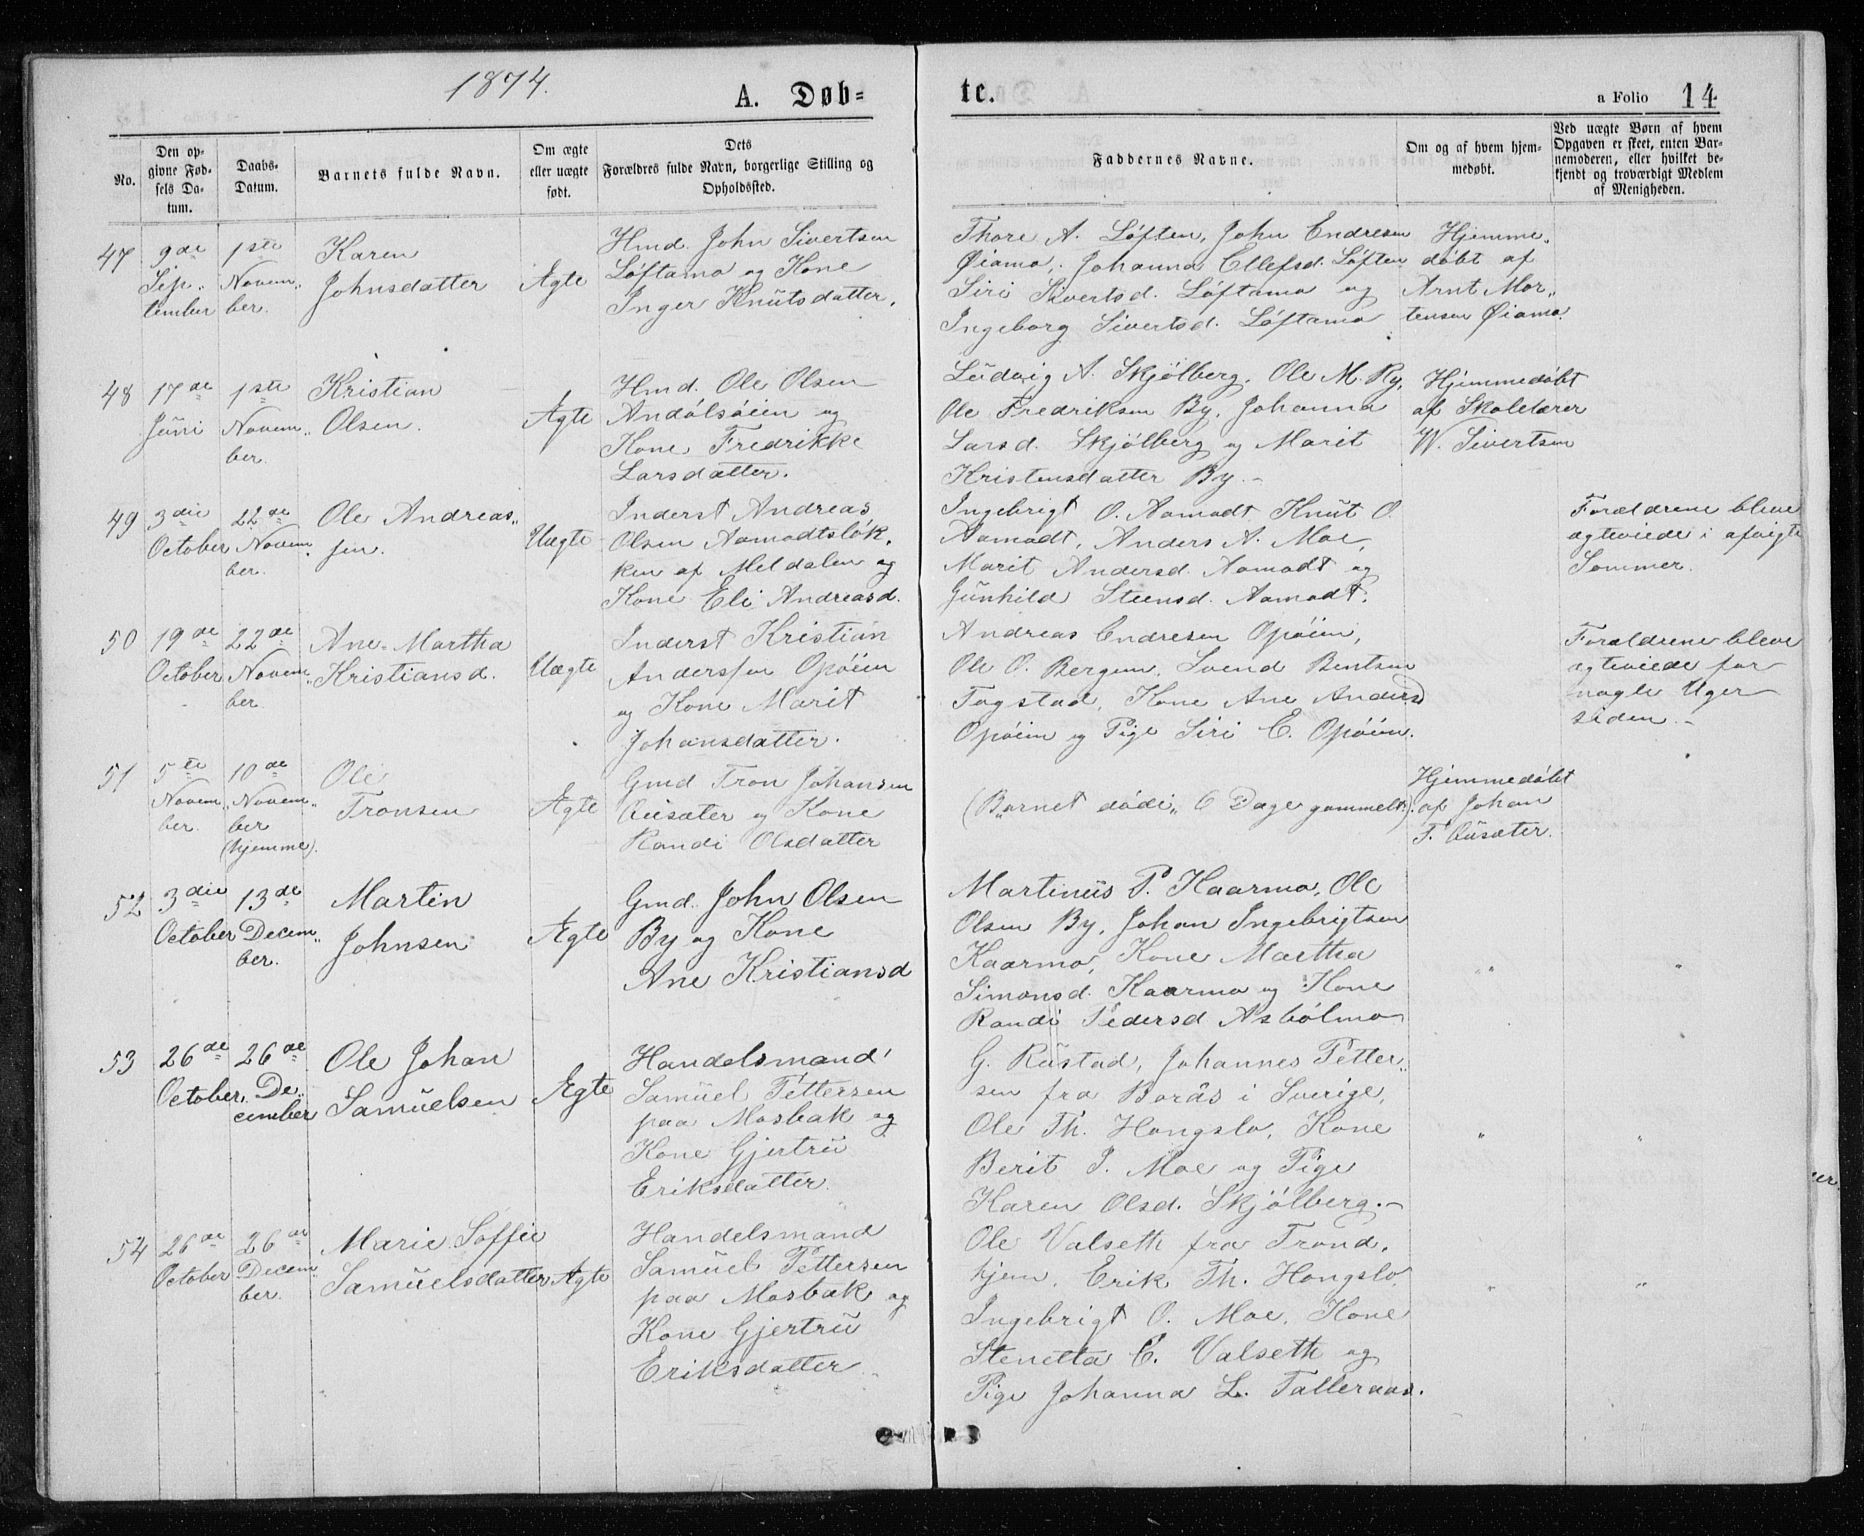 1874.
A. Døb-
te.
a Folio 14
No.
Den op-
givne Fød-
sels Da-
tum.
Daabs-
Datum.
Barnets fulde Navn.
Om ægte
eller uægte
født.
Dets
Forældres fulde Navn, borgerlige Stilling og
Opholdssted.
Faddernes Navne.
Om og af hvem hjem-
medøbt.
Ved uægte Børn af hvem
Opgaven er skeet, enten Bar-
nemoderen, eller hvilket be-
kjendt og troværdigt Medlem
af Menigheden.
47
9de
Sep-
tember
1ste
Novem-
ber.
Karen
Johnsdatter
Ægte
Hmd. John Sivertsen
Løftamo og Kone
Inger Knutsdatter.
Thore A. Løften, John Endresen
Øiamo, Johanna Ellefsd. Løften
Siri Sivertsd. Løftamo og
Ingeborg Sivertsd. Løftamo
Hjemme-
døbt af
Arnt Mor-
tensen Øiamo.
48
17de
Juni
1ste
Novem-
ber.
Kristian
Olsen.
Ægte
Hmd. Ole Olsen
Andølsøien og
Kone Fredrikke
Larsdatter.
Ludvig A. Skjølberg, Ole M. Ry,
Ole Fredriksen By, Johanna
Larsd. Skjølberg og Marit
Kristensdatter By.
Hjemmedøbt
af Skolelærer
W. Sivertsen
49
3die
October
22de
Novem-
ber.
Ole Andreas-
sen.
Uægte
Inderst Andreas
Olsen Aamodtsløk-
ken af Meldalen og
Kone Eli Andreasd.
Ingebrigt O. Aamodt Knut O.
Aamodt, Anders A. Moe,
Marit Andersd. Aamodt og
Gunhild Steensd. Aamodt.
Forældrene bleve
ægteviede i afvigte
Sommer.
50
19de
October
22de
Novem-
ber
Ane Martha
Kristiansd.
Uægte
Inderst Kristian
Anderssen Opøien
og Kone Marit
Johansdatter.
Andreas Endresen Opøien,
Ole O. Bergem, Svend Bentsen
Fagstad, Kone Ane Andersd
Opøien og Pige Siri E. Opøien.
Forældrene bleve
ægteviede for
nogle Uger
siden.
51
5te
Novem-
ber.
10de
Novem-
ber
(hjemme).
Ole
Tronsen
Ægte
Gmd Tron Johansen
Ousæter og Kone
Randi Olsdatter
(Barnet døde 6 Dage gammelt).
Hjemmedøbt
af Johan
T. Ousæter.
52
3die
October
13de
Decem-
ber.
Martin
Johnsen
Ægte
Gmd. John Olsen
By og Kone
Ane Kristiansd
Martinus P. Kaarmo, Ole
Olsen By, Johan Ingebrigtsen
Kaarmo, Kone Martha
Simonsd. Kaarmo og Kone
Randi Pedersd Asbølmo
" "
53
26de
October.
26de
De-
cember
Ole Johan
Samuelsen
Ægte
Handelsmand
Samuel Pettersen
paa Mosbak og
Kone Gjertru
Eriksdatter.
G. Rustad, Johannes Petter-
sen fra Borås i Sverige,
Ole Th. Hongslo, Kone
Berit P. Moe og Pige
Karen Olsd. Skjølberg.
" "
54
26de
October
26de
Decem-
ber.
Marie Soffie
Samuelsdatter
Ægte
Handelsmand
Samuel Pettersen
paa Mosbak og
Kone Gjertru
Eriksdatter
Ole Valseth fra Trond-
hjem, Erik Th. Hongslo
Ingebrigt O. Moe, Kone
Stenetta C. Valseth og
Pige Johanna L. Talleraas.
" "